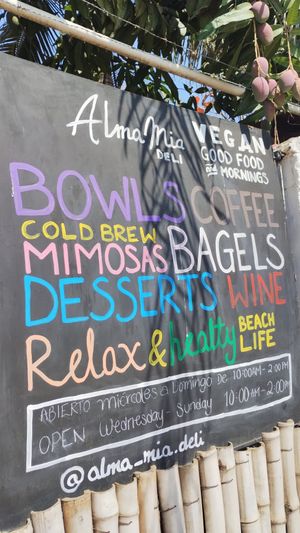 Alma Mia
DELI
VEGAN
GOOD FOOD
and MORNINGS
BOWLS COFFEE
COLD BREW
MIMOSAS BAGELS
DESSERTS WINE
Relax & healty BEACH LIFE
ABIERTO Miércoles a Domingo De 10:00AM - 2:00PM
OPEN Wednesday - Sunday 10:00AM - 2:00PM
@alma_mia.deli